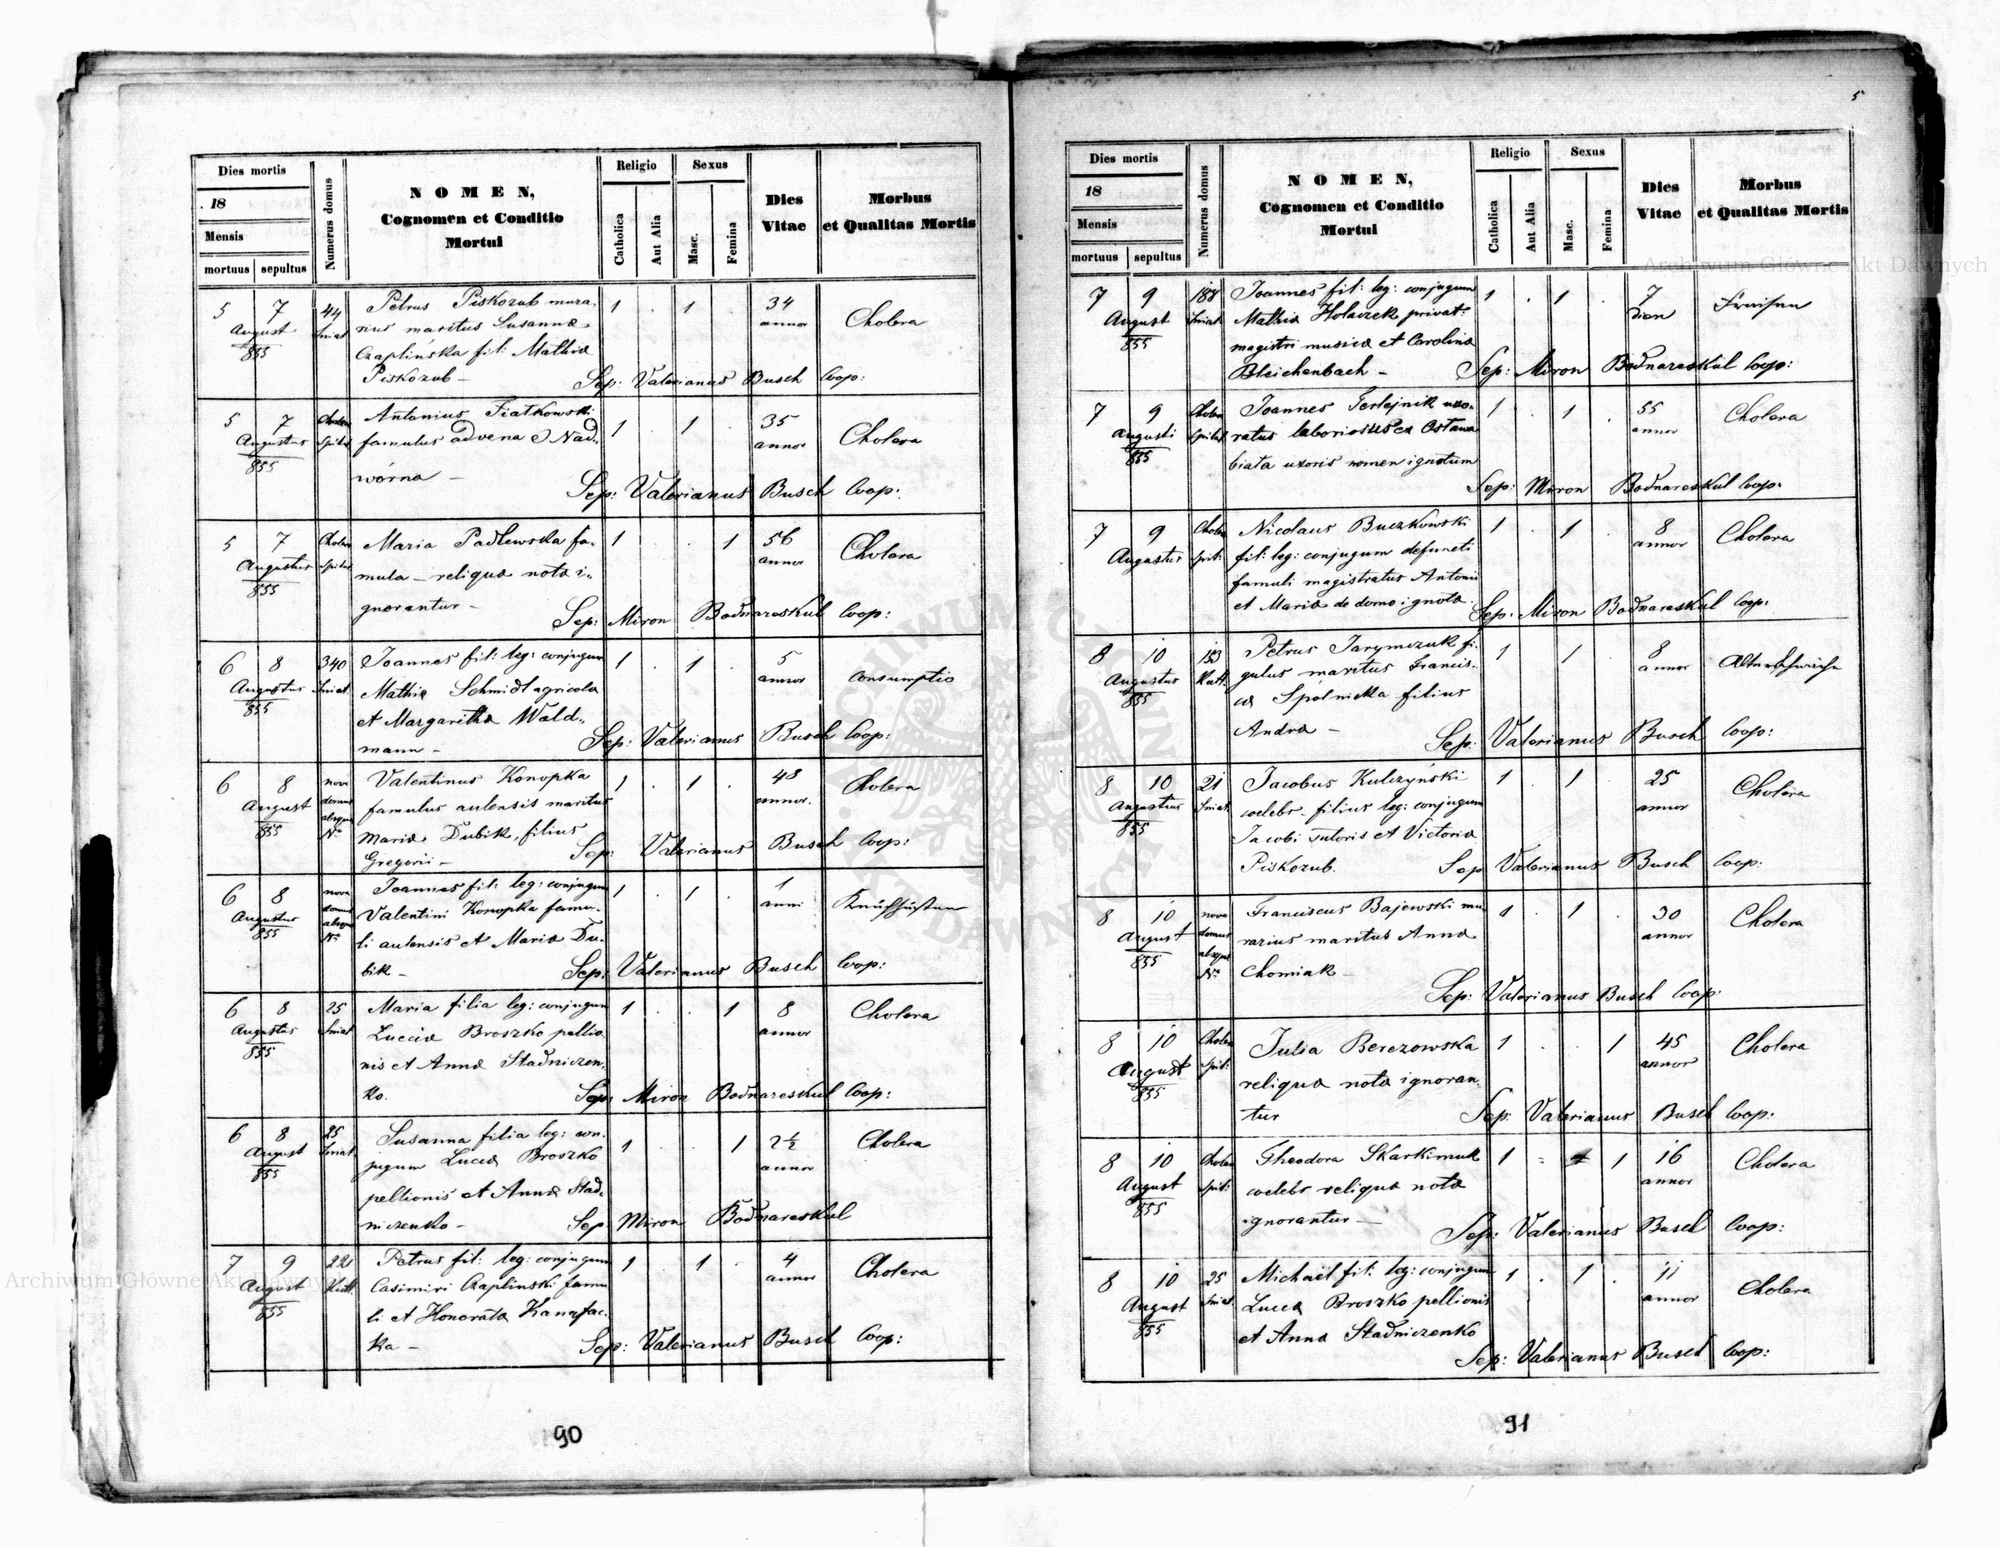 Dies mortis
18
Mensis
mortuus
sepultus
Numerus domus
NOMEN,
Cognomen et Conditio
Mortui
Religio
Catholica
Aut Alia
Sexus
Masc.
Femina
Dies
Vitae
Morbus
et Qualitas Mortis
5 7 44 Petrus Piskozub mura- 1 . 1 . 34 Cholera
August Sniat. rius maritus Susanna annor
855 Czaplińska fil: Mathia
Piskozub - Sep: Valerianus Busch Coop:
5 7 Cholera Antonius Fiatkowski 1 . 1 . 35 Cholera
Augustus Spital famulus advena e Nad- annor
855 wórna - Sep: Valerianus Busch Coop:
5 7 Cholera Maria Padlewska fa- 1 . . 1 56 Cholera
Augustus Spital mula - reliqua nota i- annor
855 gnorantur - Sep: Miron Bodnareskul Coop:
6 8 340 Joannes fil: leg: conjugum 1 . 1 . 5 Consumptio
Augustus Sniat. Mathia Schmidt agricola annor
855 et Margaritha Wald-
mann - Sep: Valerianus Busch Coop:
6 8 nova Valentinus Konopka 1 . 1 . 48 Cholera
August domus famulus aulensis maritus annor.
855 absque Maria Dubik, filius
No Gregorii - Sep: Valerianus Busch Coop:
6 8 nova Joannes fil: leg: conjugum 1 . 1 . 1
Augustus domus Valentini Konopka famu- anni
855 absque li aulensis et Maria Du-
No bik - Sep: Valerianus Busch Coop:
6 8 25 Maria filia leg: conjugum 1 . . 1 8 Cholera
Augustus Sniat Luccia Broszko pellio- annor
855 nis et Anna Stadniczen-
ko. Sep: Miron Bodnareskul Coop:
6 8 25 Susanna filia leg: con- 1 . . 1 2½ Cholera
August Sniat. jugum Lucca Broszko annor
855 pellionis et Anna Stad-
niczenko - Sep: Miron Bodnareskul
7 9 221 Petrus fil: leg: conjugum 1 . 1 . 4 Cholera
August Kutt. Casimiri Czaplinski famu annor
855 li et Honorata Kanafac-
ka - Sep: Valerianus Busch Coop:
90
5
Dies mortis
18
Mensis
mortuus
sepultus
Numerus domus
NOMEN,
Cognomen et Conditio
Mortui
Religio
Catholica
Aut Alia
Sexus
Masc.
Femina
Dies
Vitae
Morbus
et Qualitas Mortis
7 9 188 Joannes fil: leg: conjugum 1 . 1 . 7 Fraisen
August Sniat. Mathia Holaczek privat: dien
855 magistri musica et Carolina
Bleichenbach - Sep: Miron Bodnareskul Coop:
7 9 Cholera Joannes Terlejnik uxo- 1 . 1 . 55 Cholera
Augusti Spital ratus laboriosus ex Ostawa annor
855 biata uxoris nomen ignotum
Sep: Miron Bodnareskul Coop:
7 9 Cholera Nicolaus Buczkowski 1 . 1 8 Cholera
Augustus Spit: fil: leg: conjugum defuncti annor
famuli magistratus Antonii
et Maria de domo ignota. Sep: Miron Bodnareskul Coop:
8 10 153 Petrus Jarymczuk fi- 1 1 . 8
Augustus Kutt. gulus maritus Francis- annor
855 ca Spolnicka filius
Andra - Sep: Valerianus Busch Coop:
8 10 21 Jacobus Kulczyński 1 1 . 25 Cholera
Augustus Sniat. coelebs filius leg: conjugum annor
855 Jacobi sutoris et Victoria
Piskozub. Sep Valerianus Busch Coop:
8 10 nova Franciscus Bajewski mu- 1 . 1 . 30 Cholera
August domus rarius maritus Anna annor
855 absque Chomiak -
No Sep: Valerianus Busch Coop:
8 10 Cholera Julia Berezowska 1 . . 1 45 Cholera
August Spit: reliqua nota ignoran- annor
855 tur Sep: Valerianus Busch Coop:
8 10 Cholera Theodora Skarkimuk 1 1 16 Cholera
August Spit: coelebs reliqua nota annor
855 ignorantur - Sep: Valerianus Busch Coop:
8 10 25 Michael fil: leg: conjugum 1 . 1 . 11 Cholera
August Sniat. Lucca Broszko pellionis annor
855 et Anna Stadniczenko
Sep: Valerianus Busch Coop:
91
Archiwum Główne Akt Dawnych
Archiwum Główne Akt Dawnych
ARCHIWUM GŁÓWNE AKT DAWNYCH